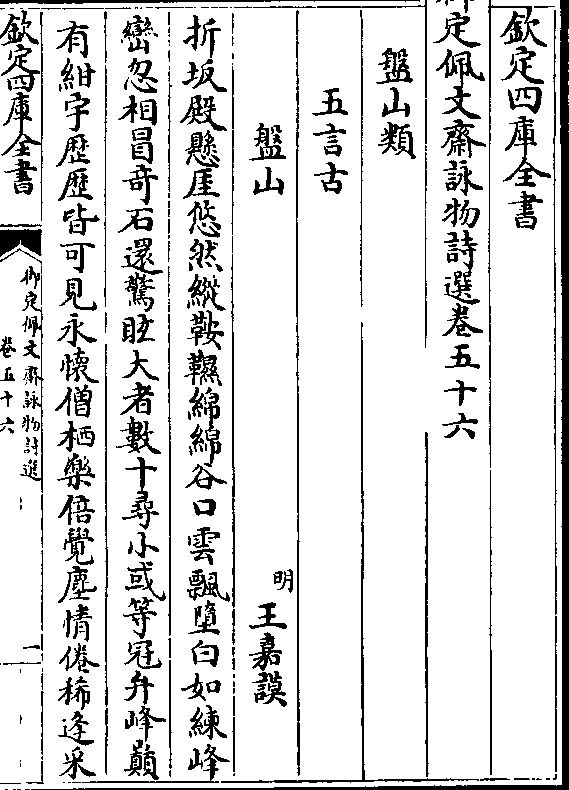 欽定四庫全書
御定佩文齋詠物詩選卷五十六
盤山類
五言古
盤山
明 王嘉謨
折坂殿懸厓悠然縱鞍韉綿綿谷口雲飄墮白如練峰
巒忽相冒奇石還驚眩大者數十尋小或等冠弁峰巔
有紺宇歷歷皆可見永懷僧栖樂倍覺塵情倦稀逢采
欽定四庫全書
御定佩文齋詠物詩選
卷五十六
一